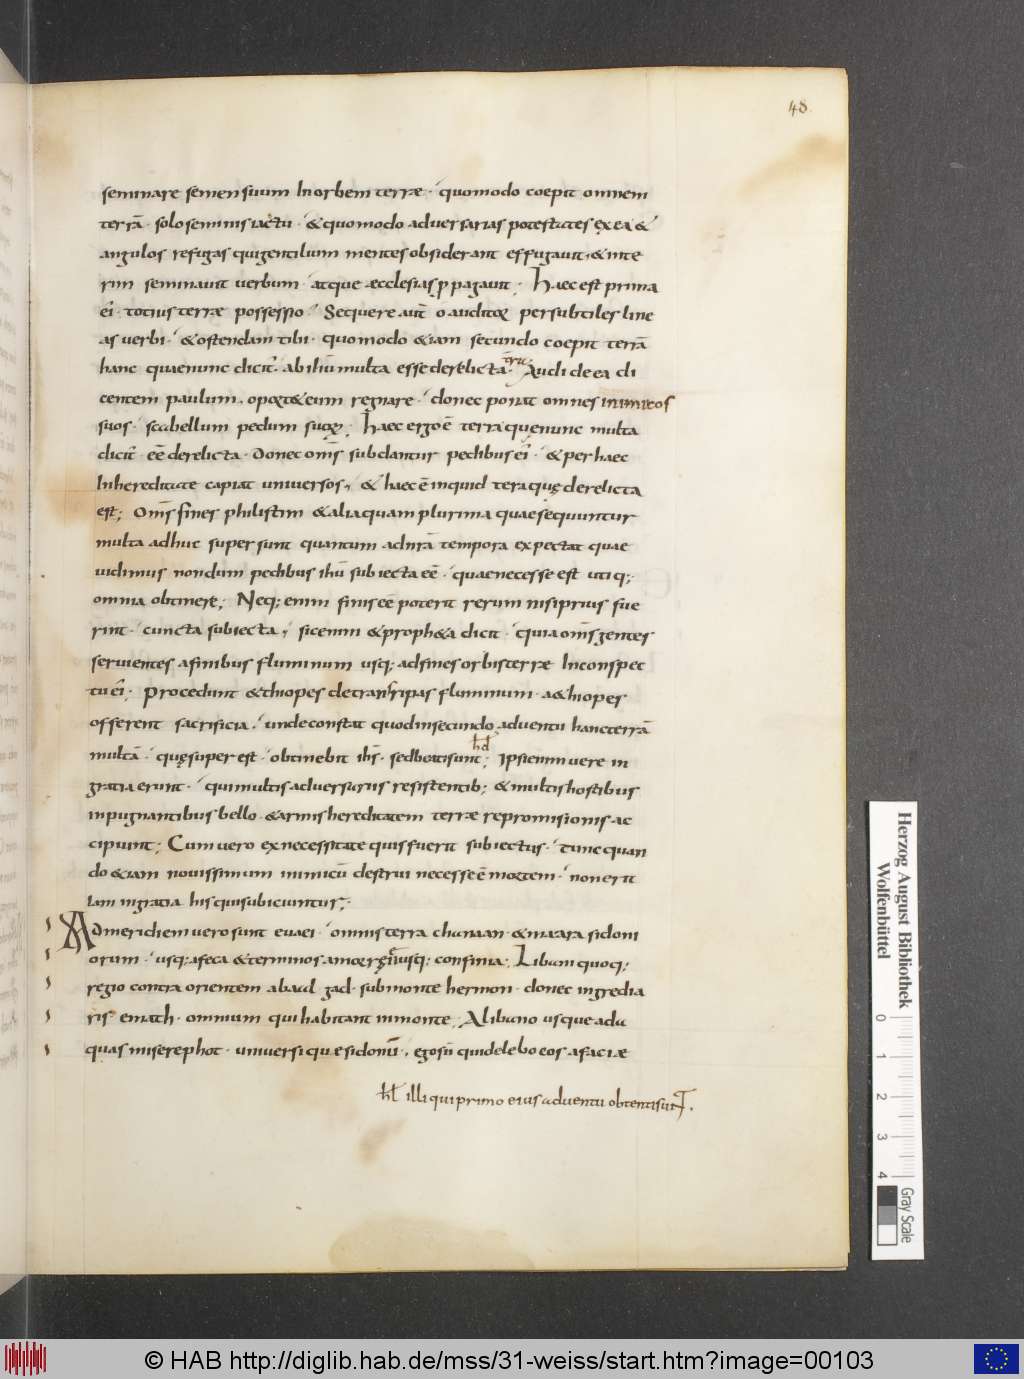 48
seminare semen suum In orbem terrae · quomodo coepit omnem
terrā · solo seminis iactu · & quomodo adversarias potestates ex ea &
angulos refugas qui gentilium mentes obsiderant effugavit · & inte
rim seminavit verbum · atque aecclesias ꝓpagavit ; Haec est prima
ei᾽ · totius terrae possessio · Sequere aut̄ o auditoꝝ per subtiles line
as verbi · & ostendam tibi · quomodo &iam secundo coepit terrā
hanc quae nunc dicit᾽ · ab ihū multa esse derelicta · Audi de ea di
centem paulum · oport& eum regnare · donec ponat omnes inimicos
suos · scabellum pedum suoꝝ ; Haec ergo ē terra quę nunc multa
dicit᾽ eē derelicta · Donec om̄s subdantur pedibus ei᾽ · & per haec
In hereditate capiat universos · & haec ē inquid tera quę derelicta
est ; Om̄s fines philistim & alia quam plurima quae sequuntur
multa adhuc supersunt quantum ad nr̄a tempora expectat quae
vidimus nondum pedibus ihū subiecta eē · quae necesse est utiq;
omnia obtinere ; Neq; enim finis eē poterit rerum nisi prius fue
rint · cuncta subiecta · sic enim & proph&a dicit · quia om̄s gentes
servientes a finibus fluminum usq; ad fines orbis terrae In conspec
tu ei᾽ · Procedunt &thiopes de trans ripas fluminum · a&hiopes
offerent sacrificia · unde constat quod in secundo adventu hanc terrā
multā · quę superest · obtinebit ihs̄ · sed · ħd ; Ipsi enim vere in
gratia erunt · qui multis adversariis resistentib; & multis hostibus
inpugnantibus bello & armis hereditatem terrae repromisionis ac
cipiunt ; Cum vero ex necessitate quis fuerit subiectus · tunc quan
do &iam novissimum inimicū destrui necesse ē mortem · non erit
iam in gratia his qui subiciuntur ;
Ad meridiem vero sunt evaei · omnis terra chanaan · & maara sidoni
orum · usq; afeca & terminos usq; confinia · Libani quoq;
regio contra orientem a baal gad · sub monte hermon · donec ingredia
ris emath · omnium qui habitant in monte · A libano usque ad a
quas miserephot · universique sidonii · ego sū qui delebo eos a faciæ
ħl illi qui primo eius adventu obtenti sunt ·
Herzog August Bibliothek
Wolfenbüttel
0 1 2 3 4
Gray Scale
© HAB http://diglib.hab.de/mss/31-weiss/start.htm?image=00103